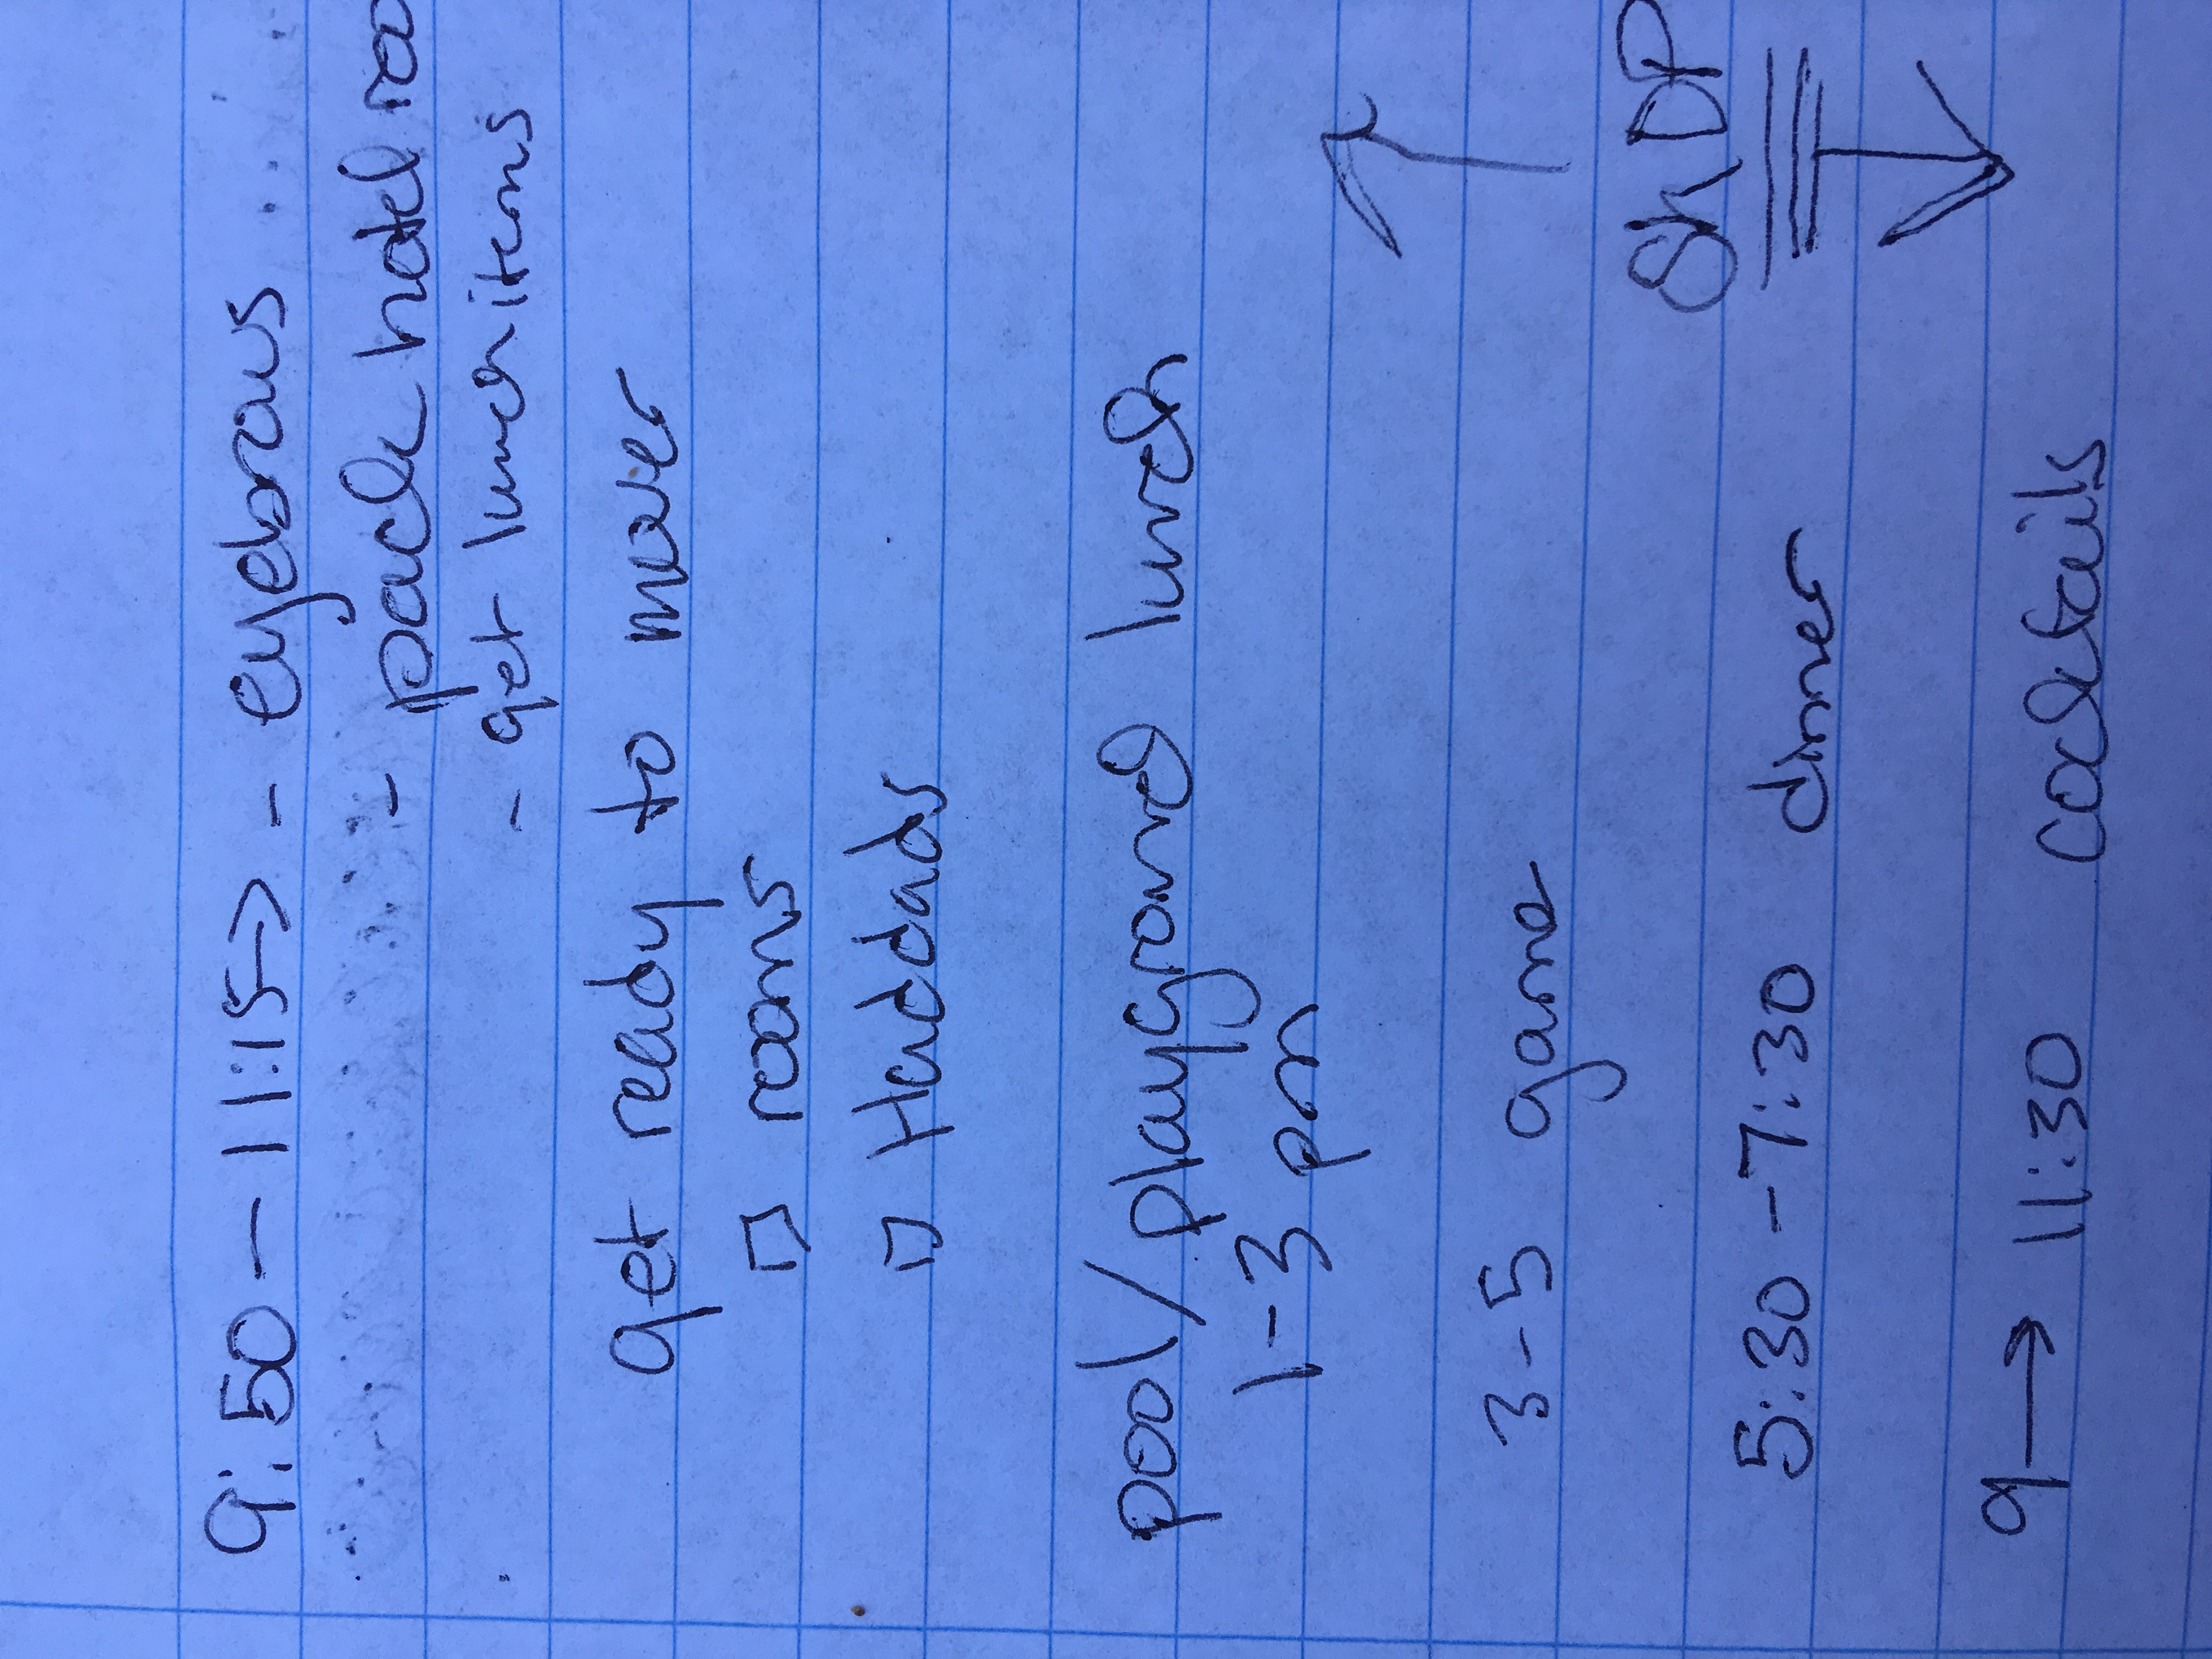 9:50 - 11:15 → - eyebrows
- pack hotel roo
- get lunch items
get ready to move
□ rooms
□ Haddads
pool/playground lunch
1-3 pm
3-5 game
ShDP
5:30 - 7:30 dinner
9 → 11:30 cocktails